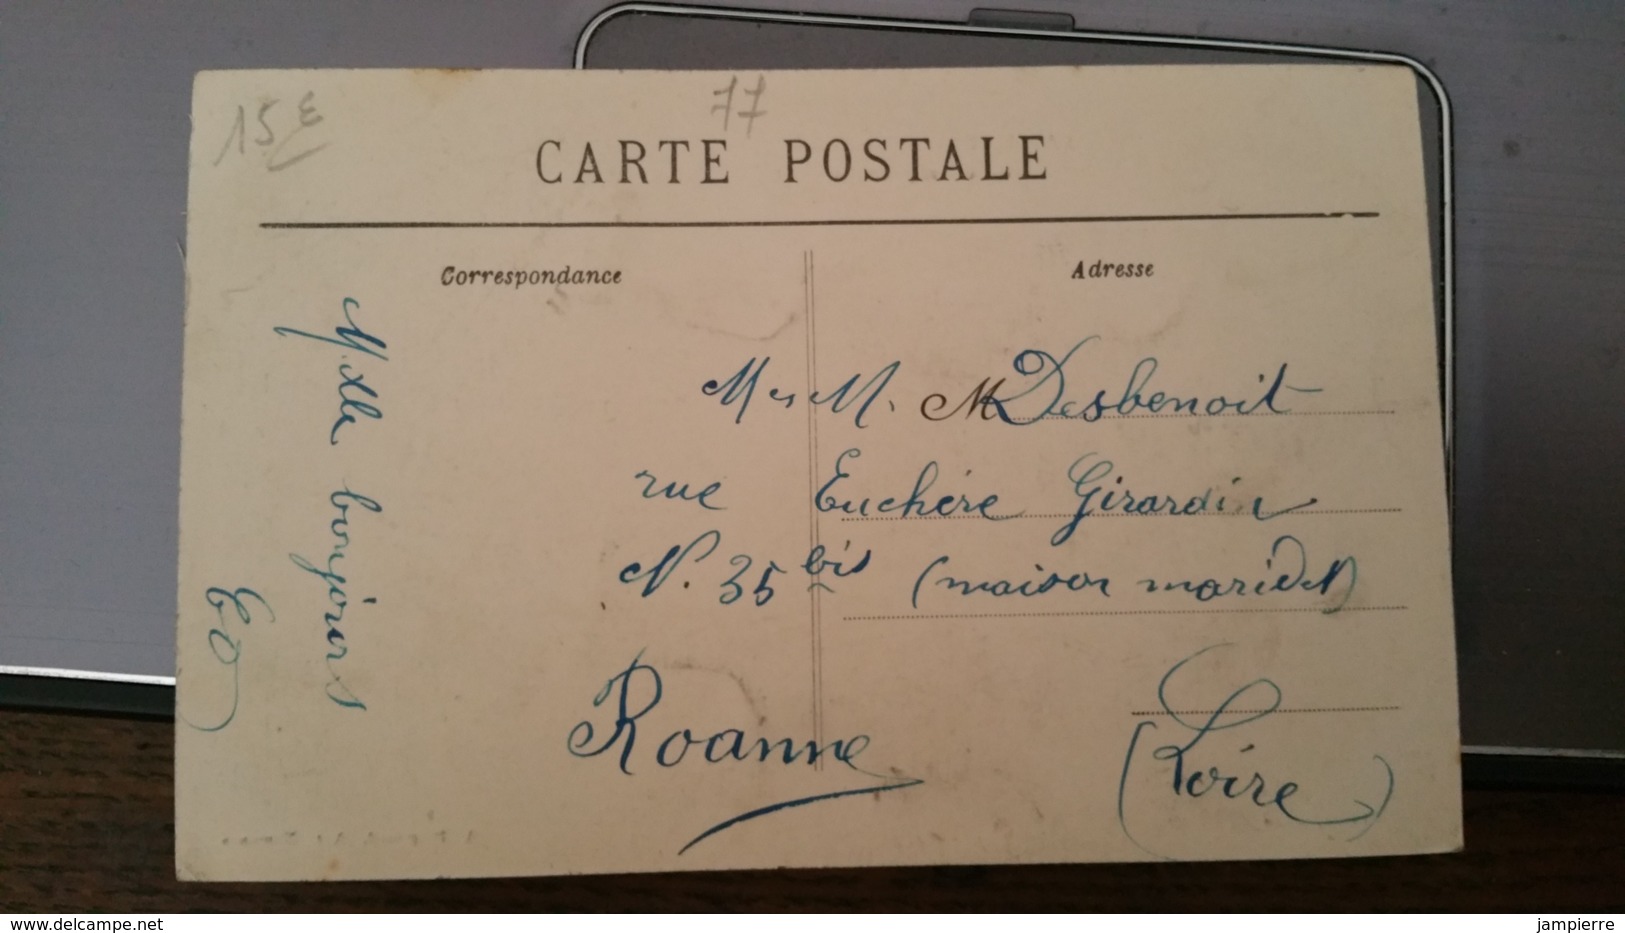 15€
77
CARTE POSTALE
Correspondance
Adresse
Mlle bonjours
M es M. M Desbenoit
rue Euchère Girardin
N. 35 bis (maison maridet)
Roanne
(Loire)
delcampe.net
jampierre